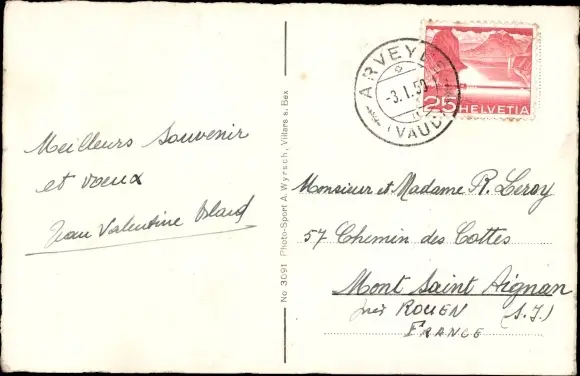 Meilleurs souvenir
et vœux
Jean Valentine
No 3091 Photo-Sport A. Wyrsch, Villars s. Bex
ARVEYES
-3.1.50
(VAUD)
25 HELVETIA
Monsieur et Madame R. Leroy
57 Chemin des Cottes
Mont Saint Aignan
près ROUEN (S.I.)
FRANCE